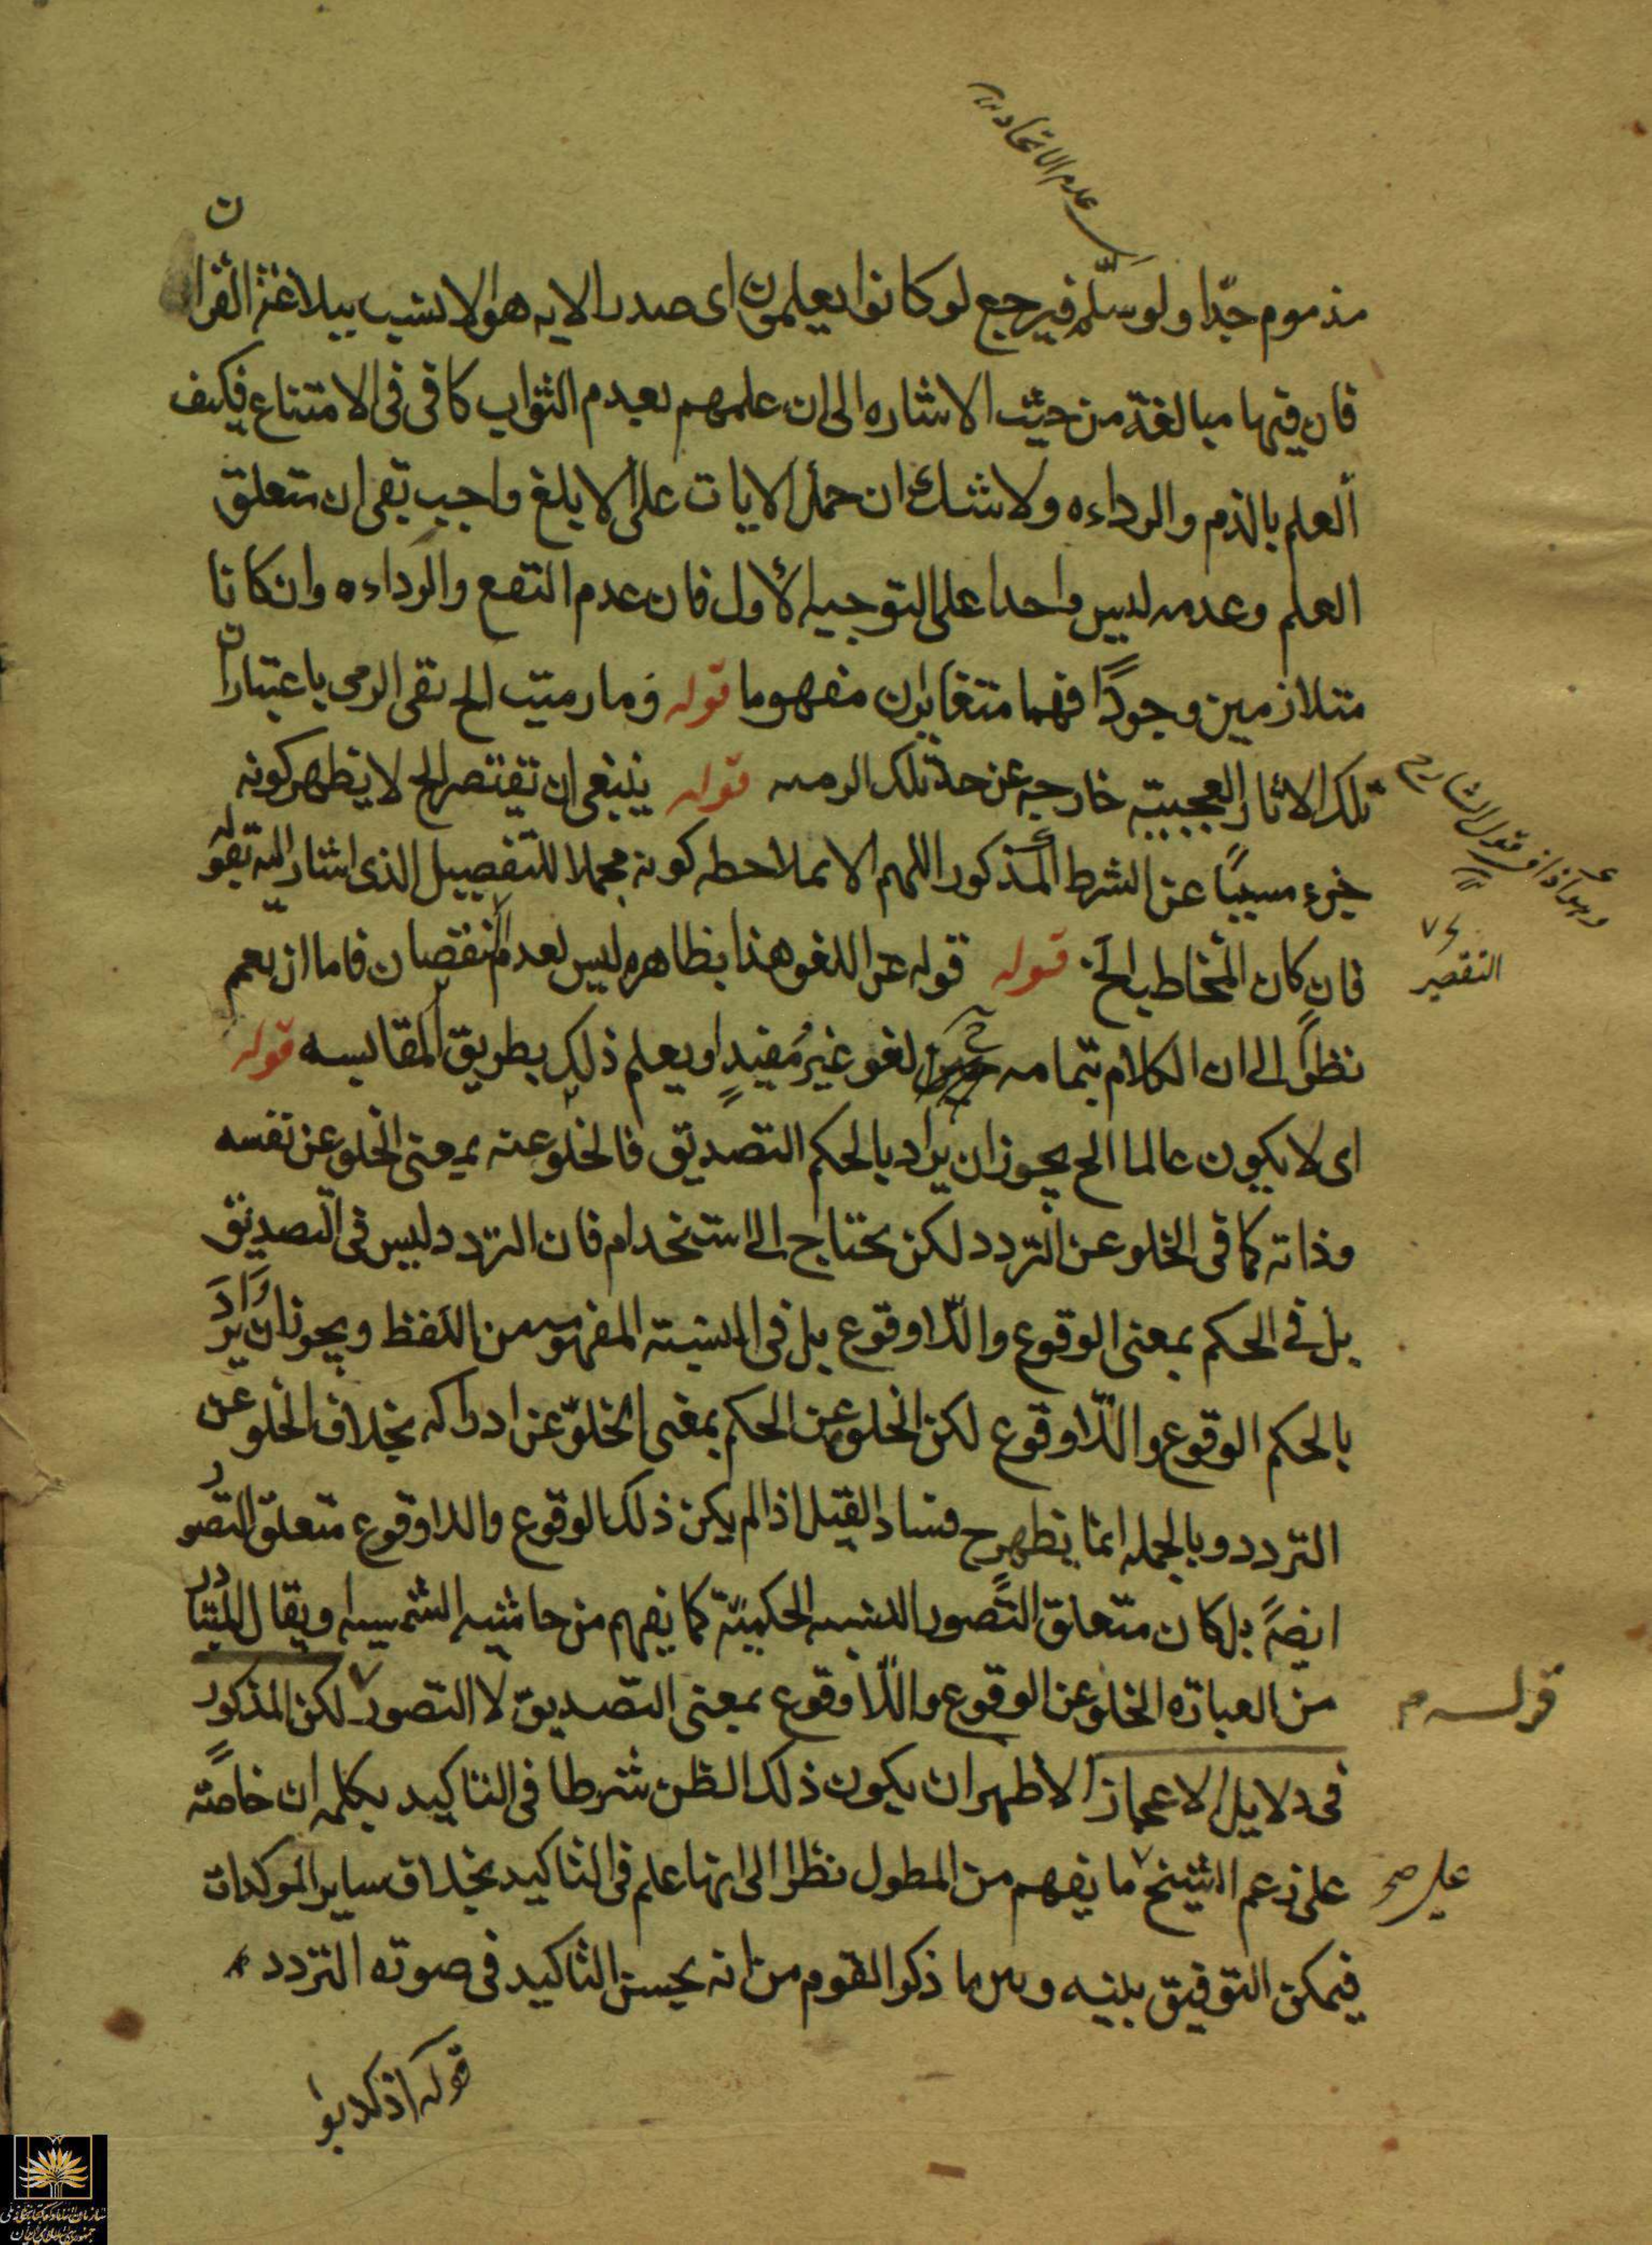 عدم الاتحاد
مذموم جدّا ولو سلّم فيرجع لو كانوا يعلمون اى صدر الايه هو الانسب ببلاغة القران
فان فيها مبالغة من حيث الاشاره الى ان علمهم بعدم الثواب كافى فى الامتناع فكيف
العلم بالذم والرداءه ولا شك ان حمل الايات على الابلغ واجب بقى ان متعلق
العلم وعدمه ليس واحدا على التوجيه الأول فان عدم النفع والرداءه وان كانا
متلازمين وجودًا فهما متغايران مفهوما قوله وما رميت الخ نفى الرمى باعتبار ان
تلك الاثار العجيبة خارجه عن حد تلك الرميه قوله ينبغى ان يقتصر الخ لا يظهر كونه
جزء مسببًا عن الشرط المذكور اللهم الا بملاحظه كونه مجملا للتفصيل الذى اشار اليه بقوله
فان كان المخاطب الخ قوله قوله عن اللغو هذا بظاهره ليس لعدم النقصان فاما ان يعم
التقصير
نظرًا الى ان الكلام بتمامه لغو غير مفيدٍ او يعلم ذلك بطريق المقايسه قوله
اى لا يكون عالما الخ يجوز ان يراد بالحكم التصديق فالخلو عنه بمعنى الخلو عن نفسه
وذاته كما فى الخلو عن التردد لكن يحتاج الى استخدام فان التردد ليس فى التصديق
بل فى الحكم بمعنى الوقوع واللّاوقوع بل فى النسبته المفهومه من اللفظ ويجوز ان يراد
بالحكم الوقوع واللّاوقوع لكن الخلو عن الحكم بمعنى الخلوّ عن ادراكه بخلاف الخلو عن
التردد وبالجمله انما يظهر ح فساد القيل اذا لم يكن ذلك الوقوع واللاوقوع متعلق التصور
ايضًا بل كان متعلق التصور النسبه الحكمية كما يفهم من حاشيه الشمسيه ويقال المتبادر
من العباره الخلو عن الوقوع واللّاوقوع بمعنى التصديق لا التصور لكن المذكور
قوله م
فى دلايل الاعجاز الاظهر ان يكون ذلك الظن شرطا فى التاكيد بكلمه ان خاصّة
على زعم الشيخ ما يفهم من المطول نظرا الى انها علم فى التاكيد بخلاف ساير الموكدات
على صح
فيمكن التوفيق بينه وبين ما ذكر القوم من انه يحسن التاكيد فى صوره التردد
قوله اذ كذبوا